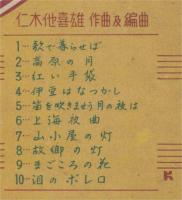 仁木他喜雄 作曲及編曲
1…歌で暮らせば
2…高原の月
3…紅い手袋
4…伊豆はなつかし
5…笛を吹きませう月の夜は
6…上海夜曲
7…山小屋の灯
8…故郷の灯
9…まごころの花
10…泪のボレロ
K